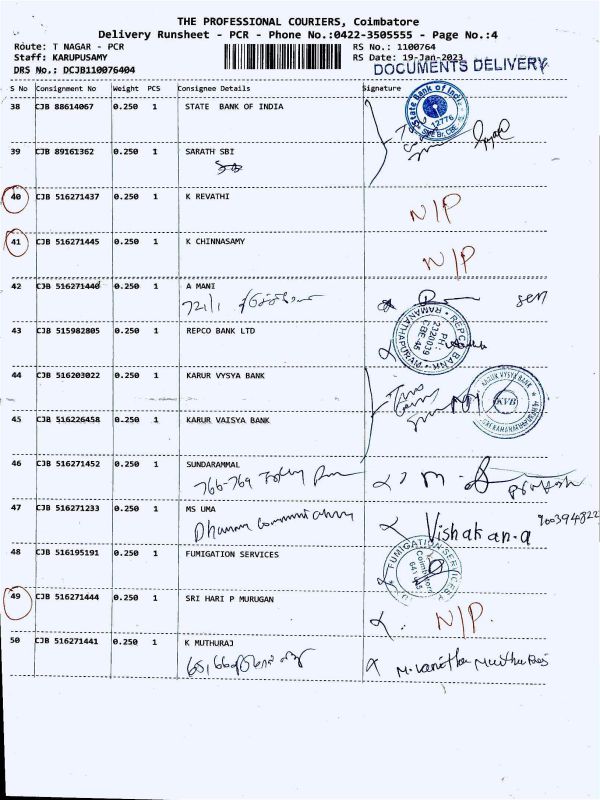 THE PROFESSIONAL COURIERS, Coimbatore
Delivery Runsheet - PCR - Phone No.:0422-3505555 - Page No.:4
Route: T NAGAR - PCR
RS No.: 1100764
Staff: KARUPUSAMY
RS Date: 19-Jan-2023
DRS No.: DCJB110076404
DOCUMENTS DELIVERY
S No Consignment No Weight PCS Consignee Details Signature
38 CJB 88614067 0.250 1 STATE BANK OF INDIA
State Bank of India
12776
39 CJB 89161362 0.250 1 SARATH SBI
40 CJB 516271437 0.250 1 K REVATHI N/P
41 CJB 516271445 0.250 1 K CHINNASAMY N/P
42 CJB 516271440 0.250 1 A MANI
72/1
43 CJB 515982805 0.250 1 REPCO BANK LTD
REPCO BANK
RAMANATHAPURAM
PH: 2320039
CBE-45
44 CJB 516203022 0.250 1 KARUR VYSYA BANK
KARUR VYSYA BANK
KVB
45 CJB 516226458 0.250 1 KARUR VAISYA BANK
46 CJB 516271452 0.250 1 SUNDARAMMAL
766-769
47 CJB 516271233 0.250 1 MS UMA
Vishakan.a
48 CJB 516195191 0.250 1 FUMIGATION SERVICES
FUMIGATION SERVICES
Coimbatore
49 CJB 516271444 0.250 1 SRI HARI P MURUGAN N/P.
50 CJB 516271441 0.250 1 K MUTHURAJ
M. Vanitha Muthu Raj